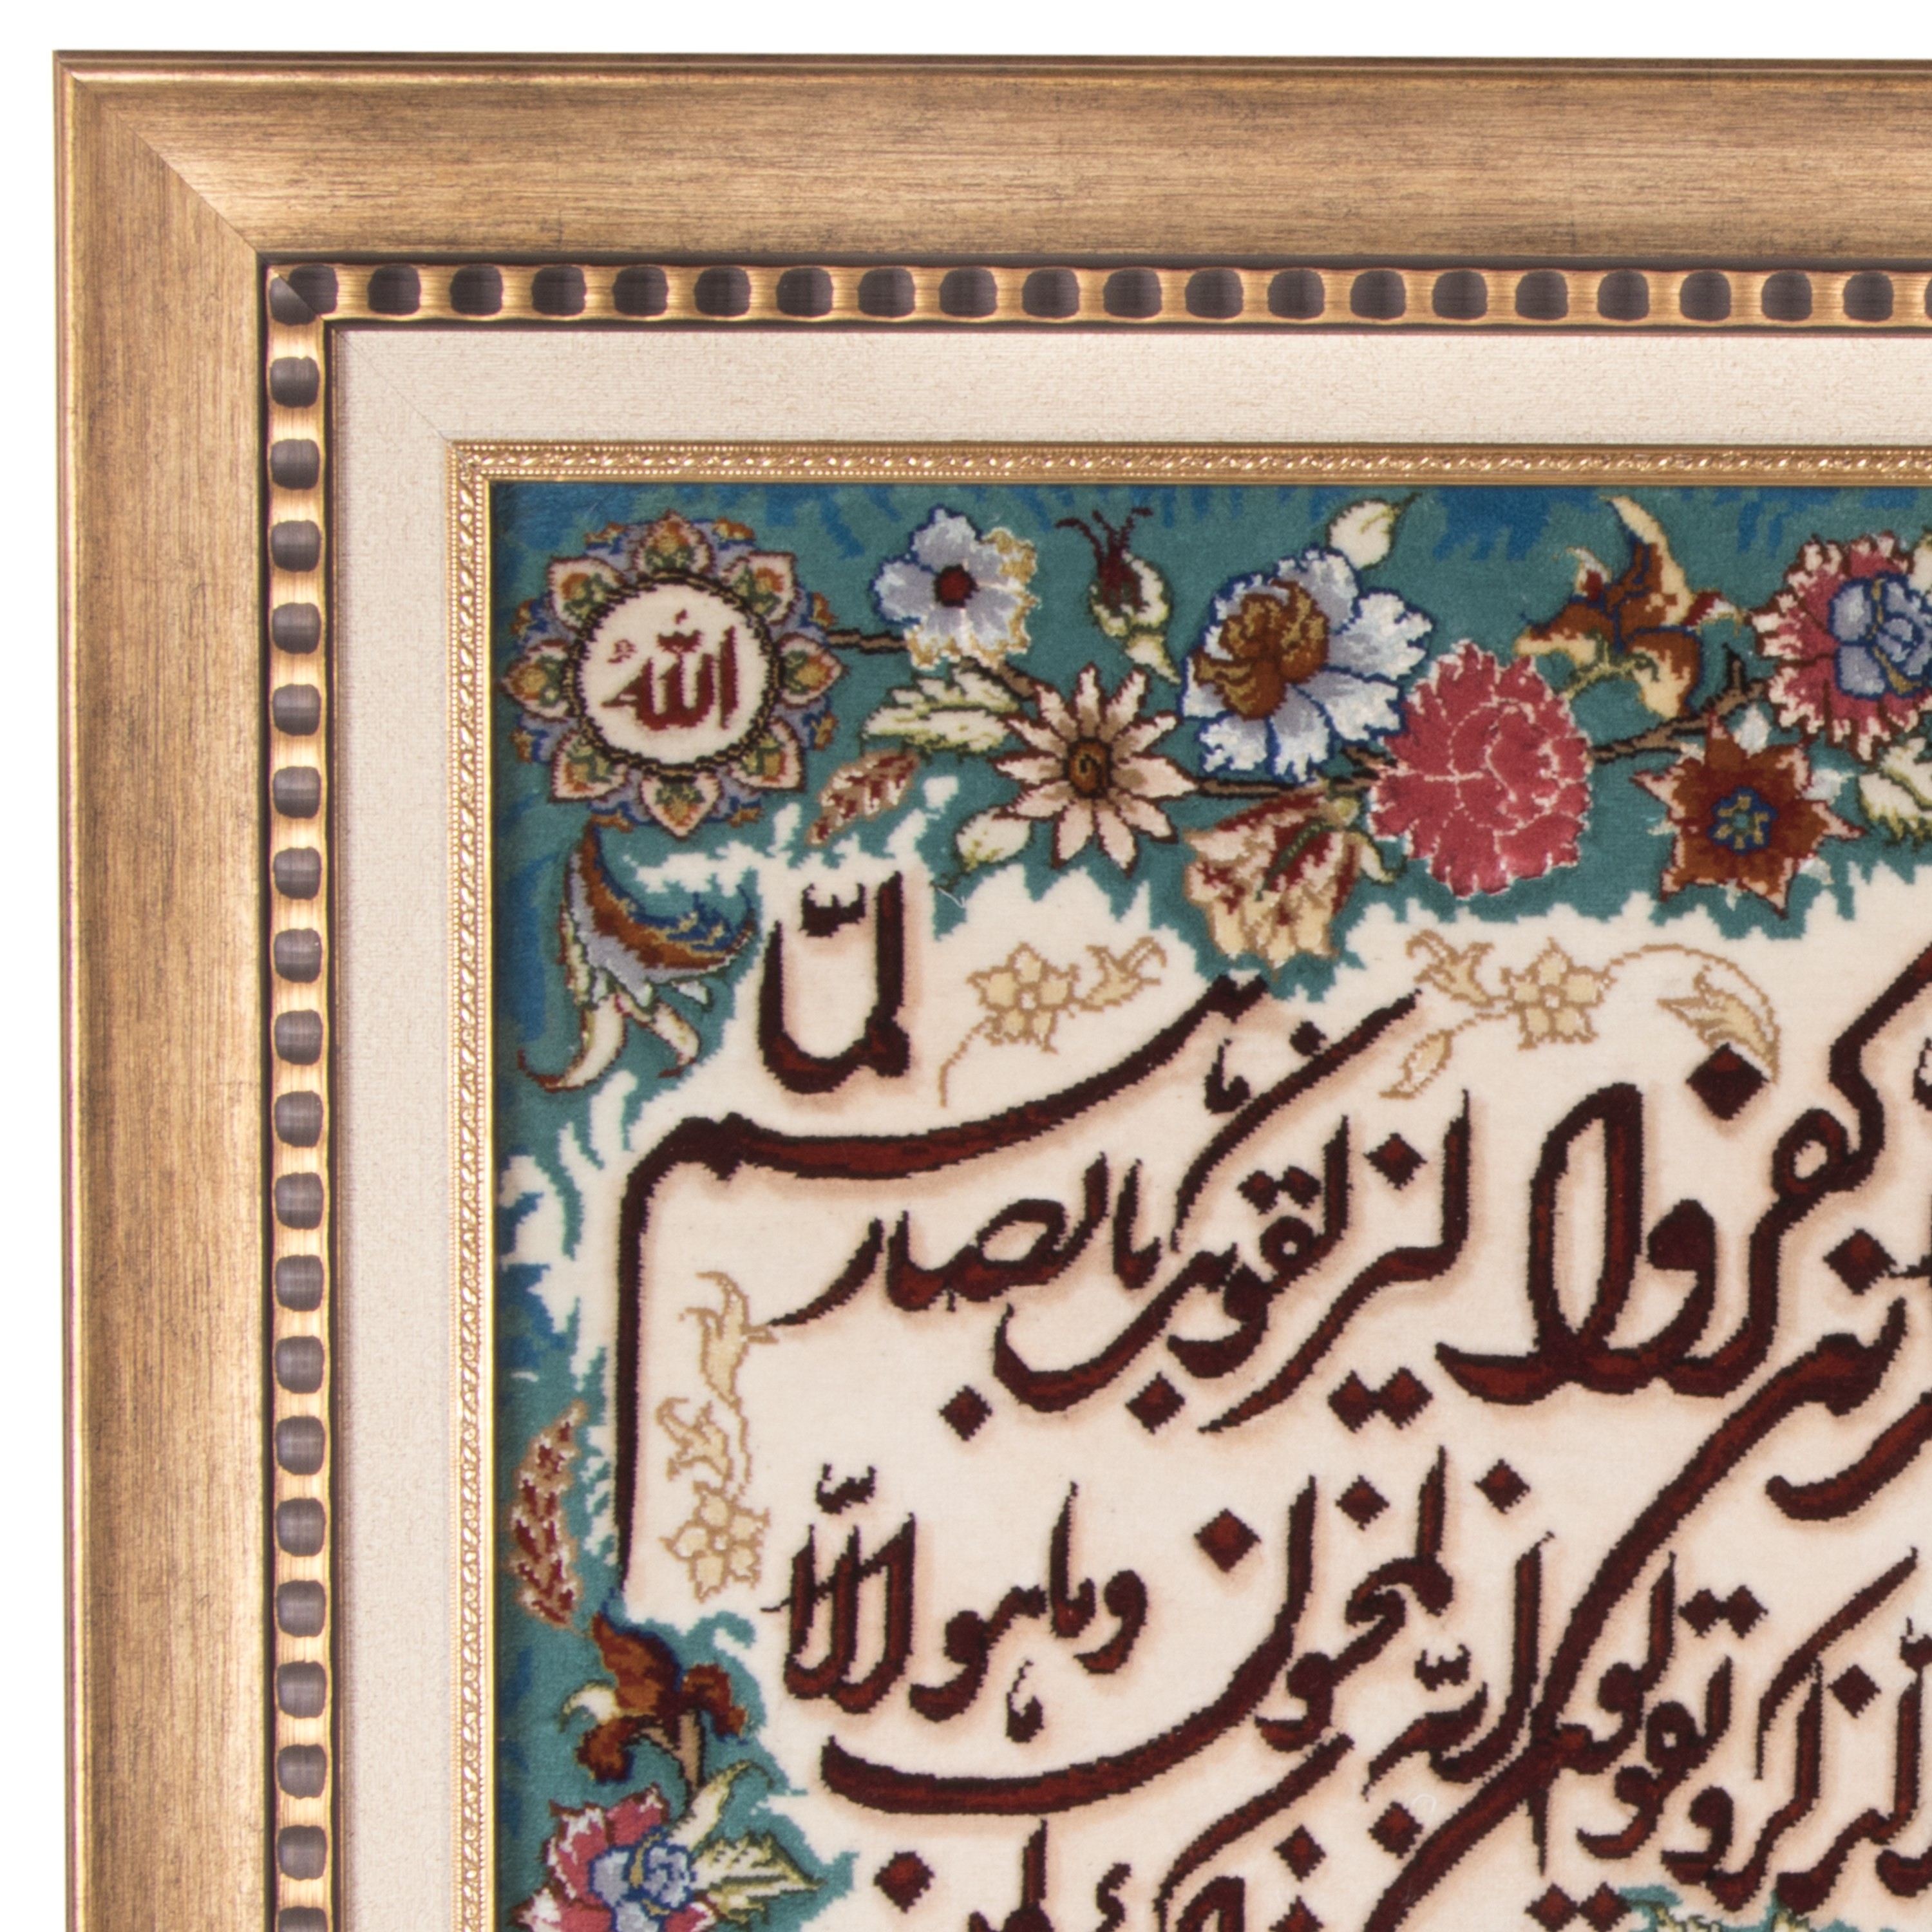 الله
كفروا ليزلقونك بابصارهم لما
الذكر و يقولون انه لمجنون وماهو الا